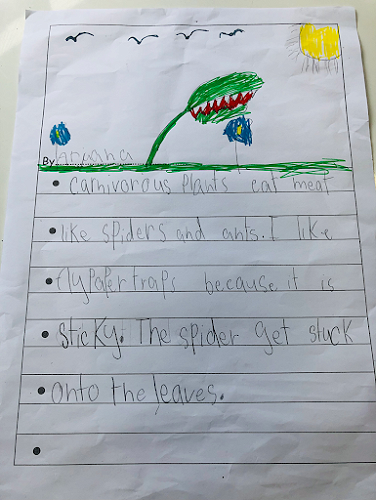 By
carnivorous plants eat meat
like spiders and ants. I like
flypaper traps because it is
sticky. The spider get stuck
onto the leaves.